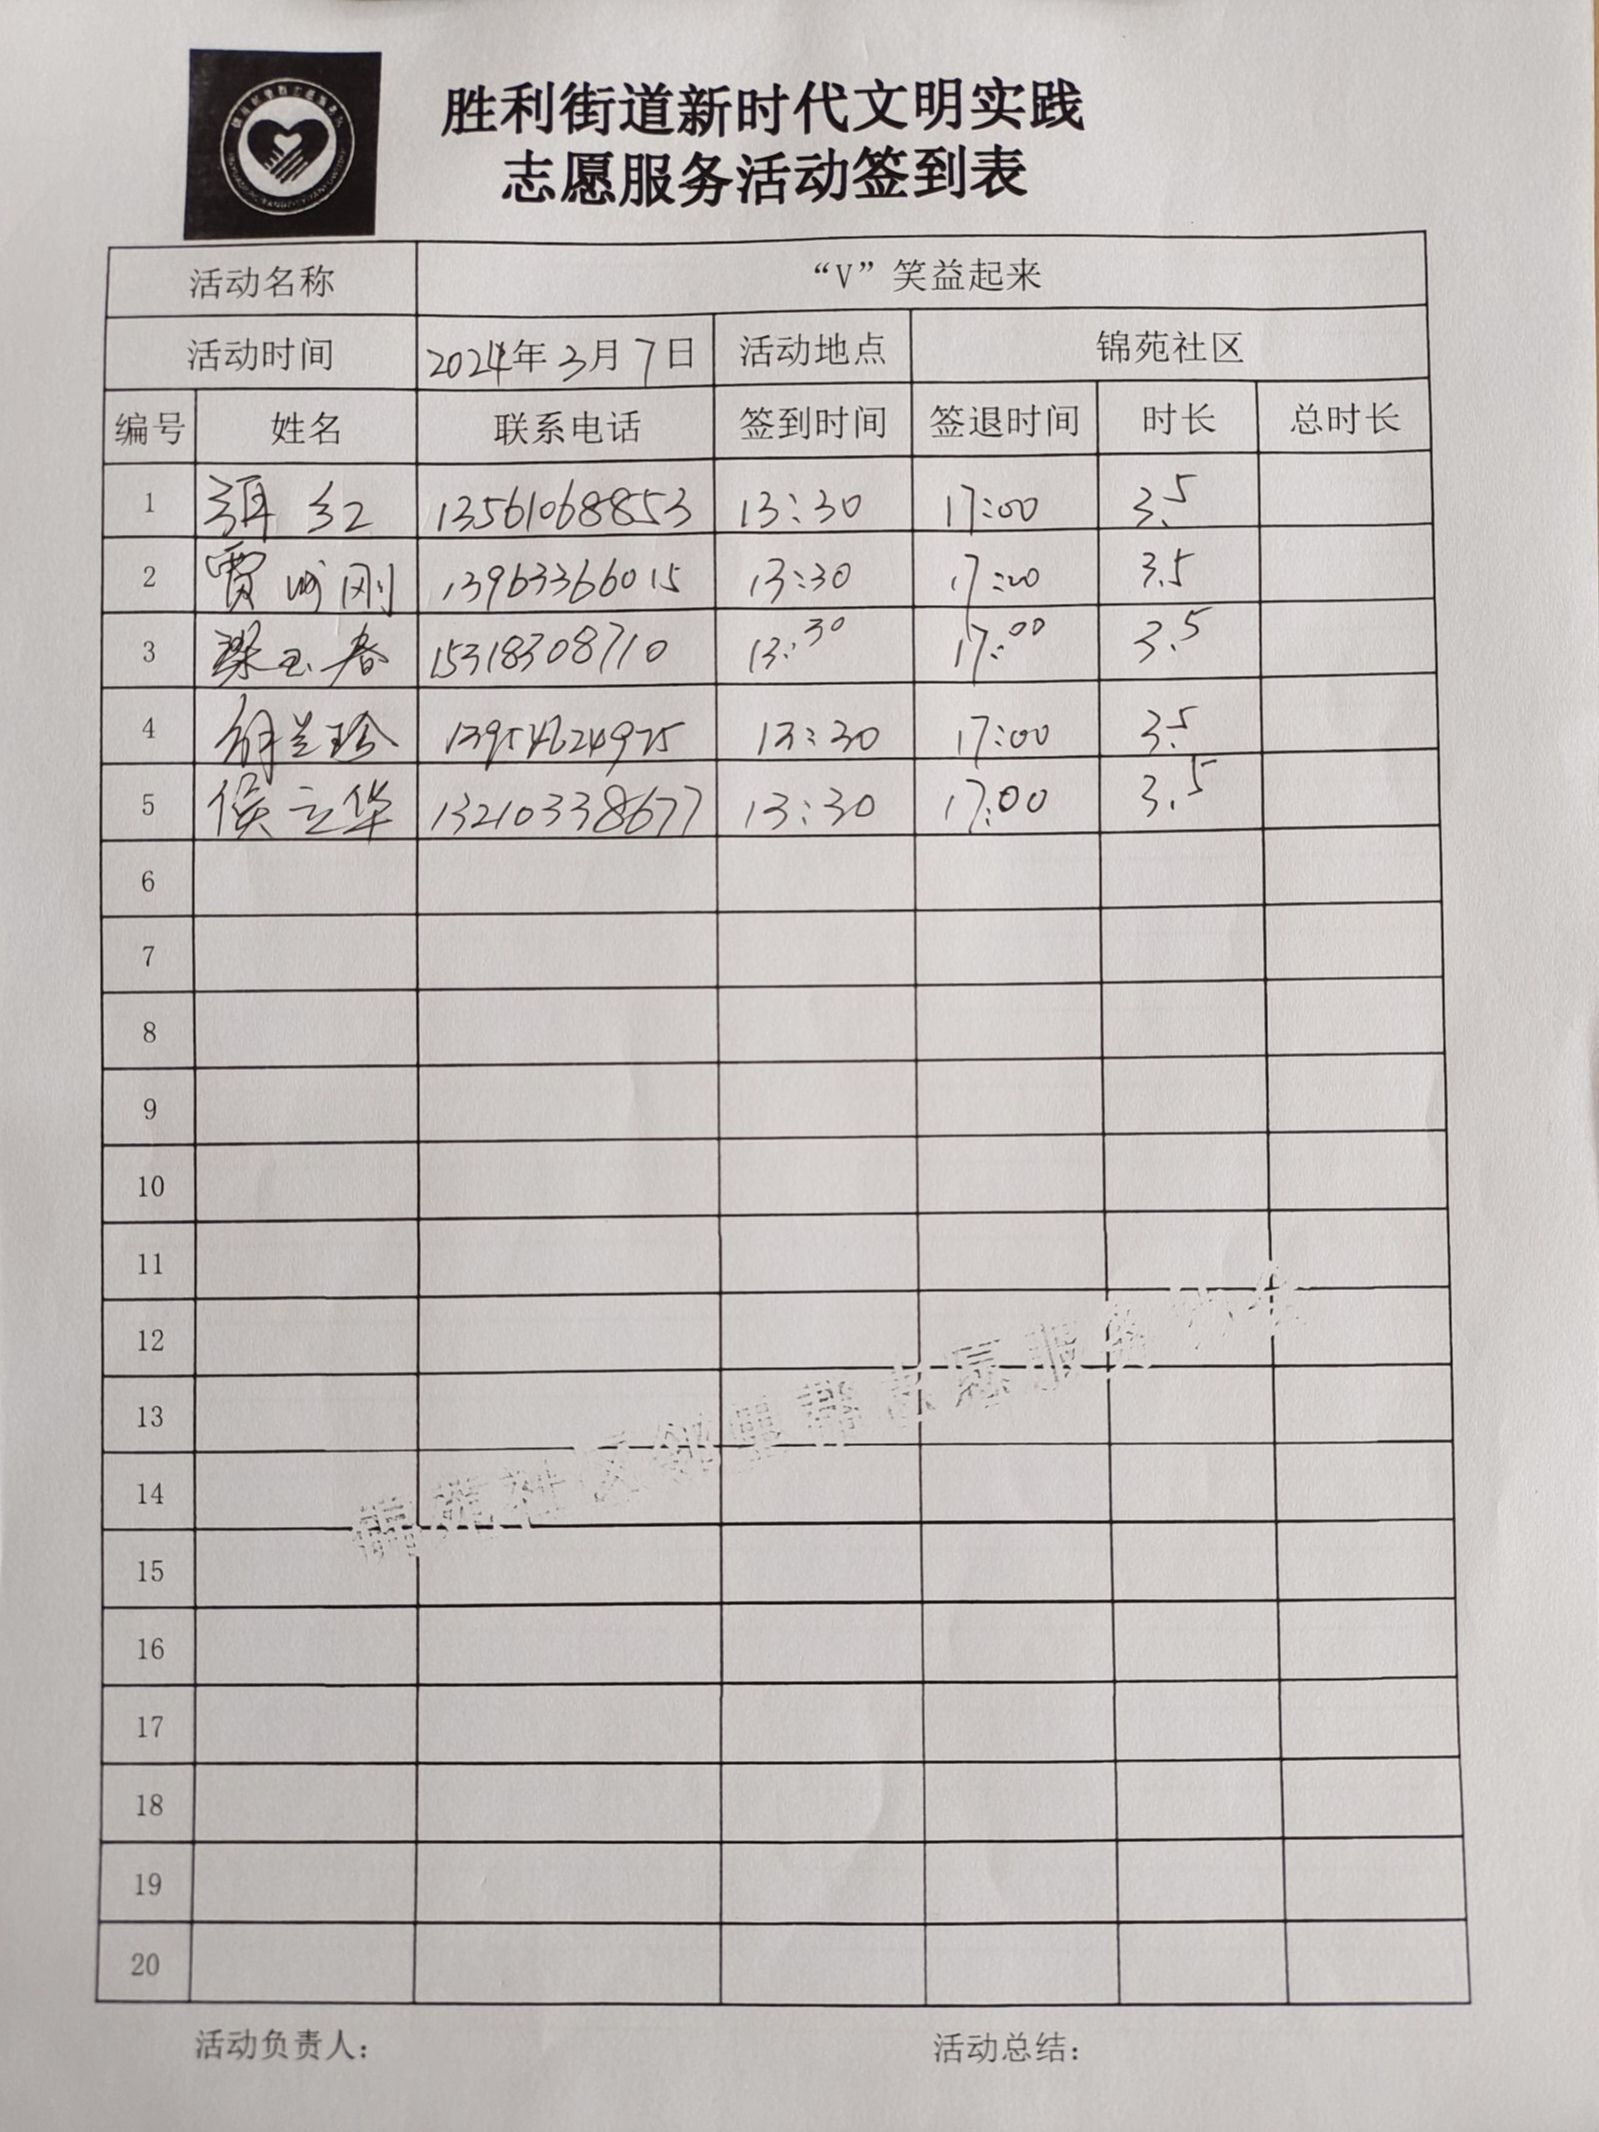 胜利街道新时代文明实践
志愿服务活动签到表
活动名称 “V”笑益起来
活动时间 2024年3月7日 活动地点 锦苑社区
编号 姓名 联系电话 签到时间 签退时间 时长 总时长
1 红 13561068853 13:30 17:00 3.5
2 贾 刚 13963366015 13:30 17:00 3.5
3 梁玉春 15318308710 13:30 17:00 3.5
4 徐兰珍 13954624975 13:30 17:00 3.5
5 侯立华 13210338677 13:30 17:00 3.5
6
7
8
9
10
11
12
13
14
15
16
17
18
19
20
锦苑社区邻里帮志愿服务
活动负责人： 活动总结：